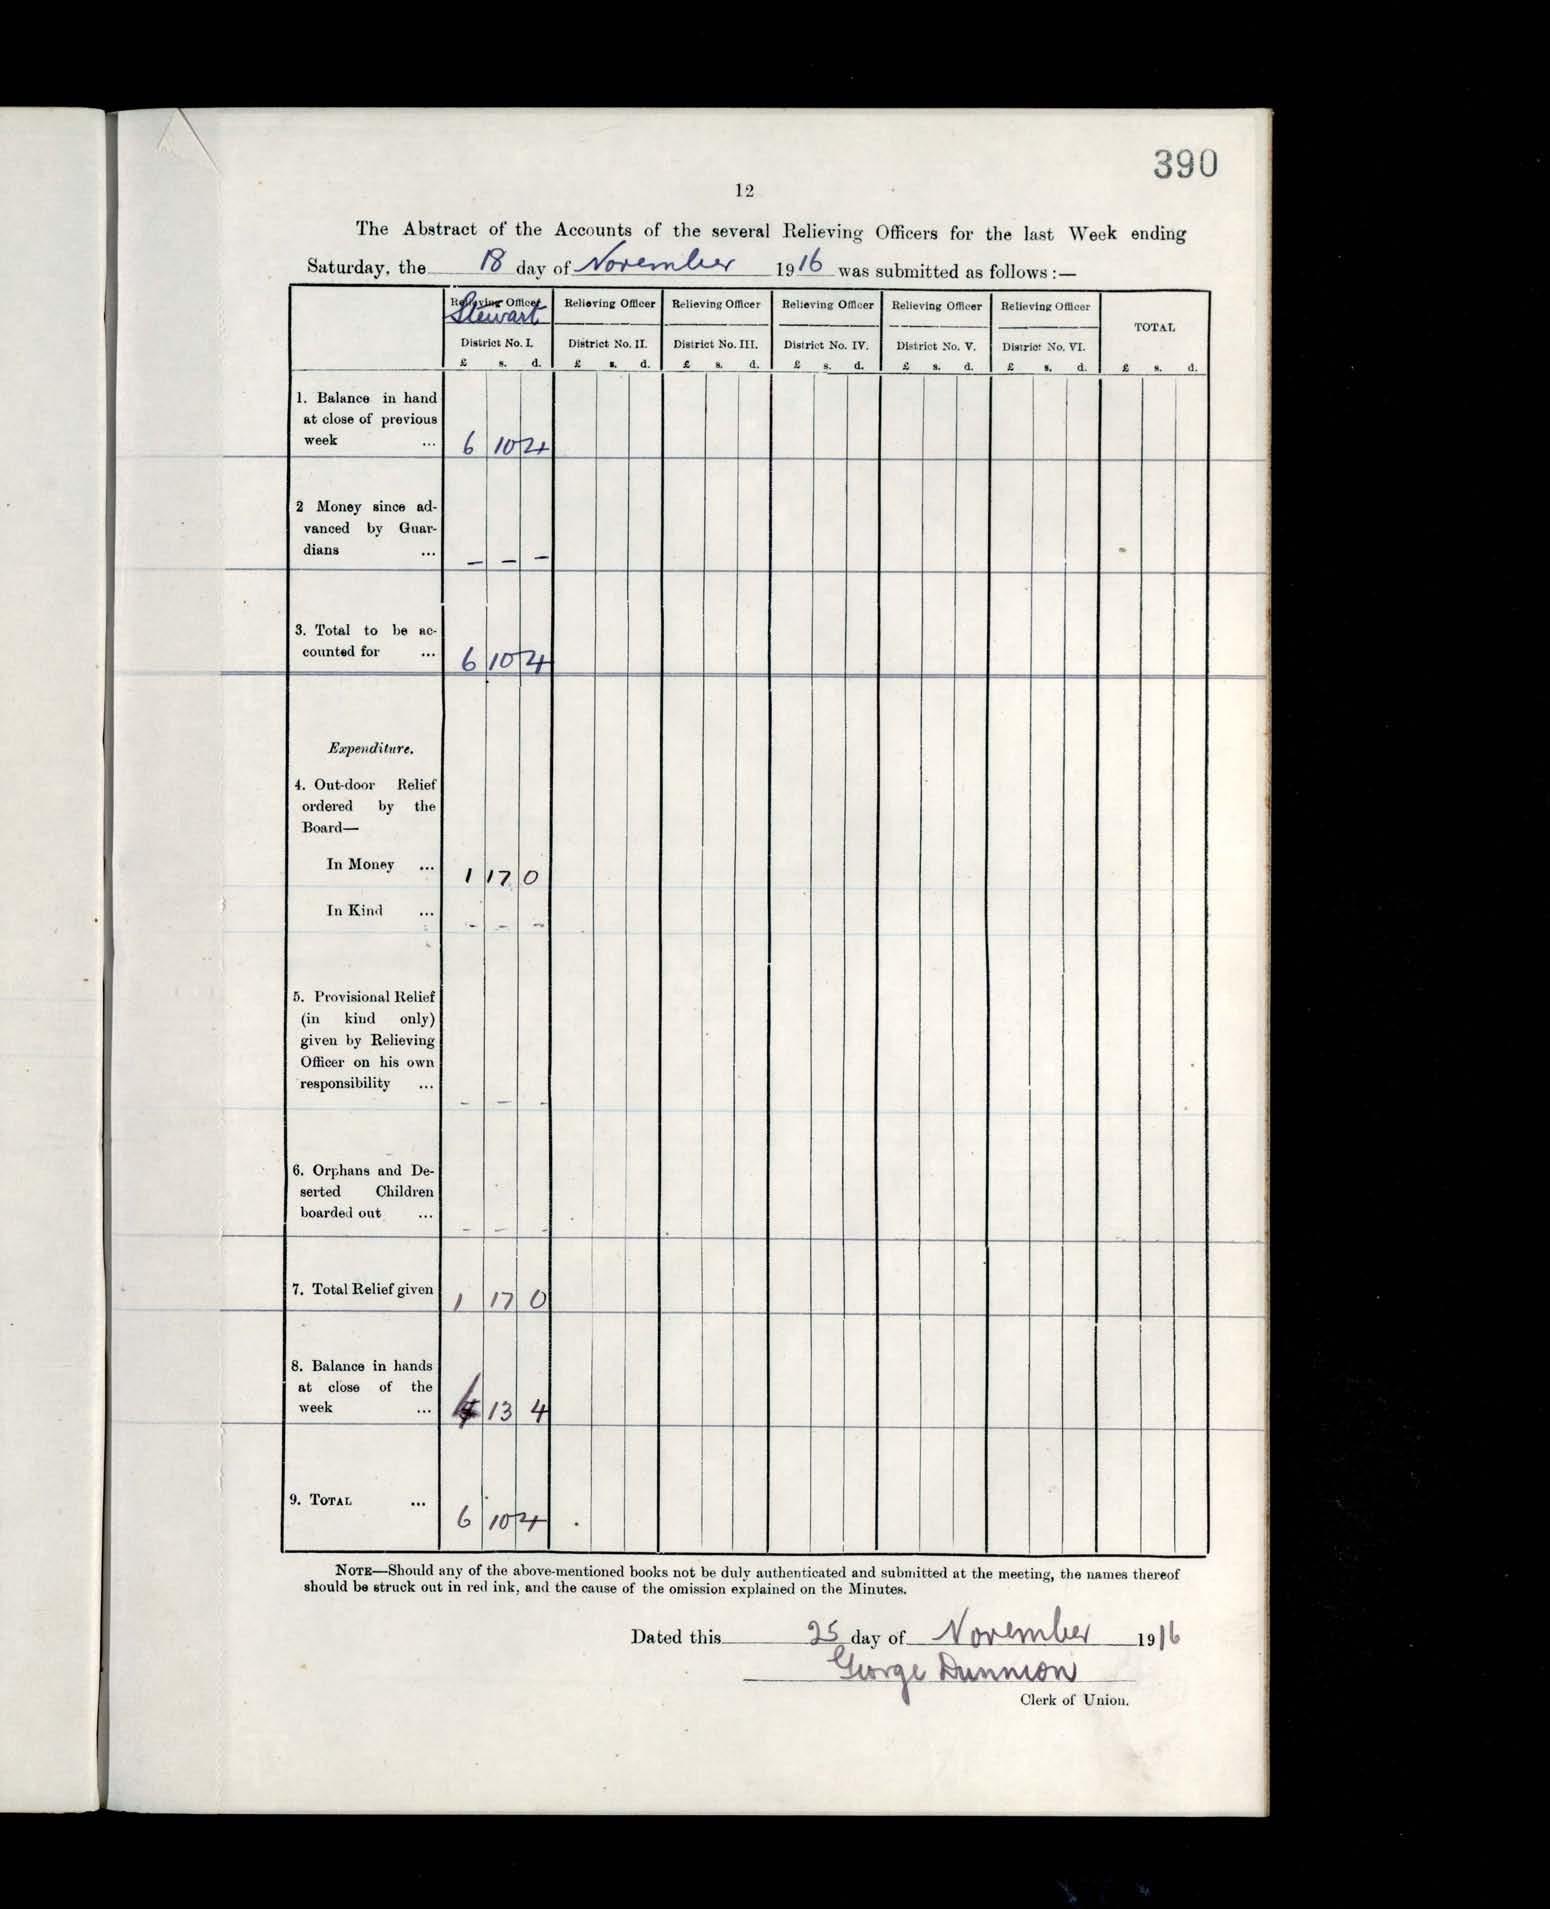 390
12
The Abstract of the Accounts of the several Relieving Officers for the last Week ending
Saturday, the 18 day of November 1916 was submitted as follows :—
Relieving Officer Relieving Officer Relieving Officer Relieving Officer Relieving Officer Relieving Officer
Stewart
TOTAL
District No. I. District No. II. District No. III. District No. IV. District No. V. District No. VI.
£ s. d. £ s. d. £ s. d. £ s. d. £ s. d. £ s. d. £ s. d.
1. Balance in hand
at close of previous
week ... 6 10 4
2 Money since ad-
vanced by Guar-
dians ... – – –
3. Total to be ac-
counted for ... 6 10 4
Expenditure.
4. Out-door Relief
ordered by the
Board—
In Money ... 1 17 0
In Kind ... – – –
5. Provisional Relief
(in kind only)
given by Relieving
Officer on his own
responsibility ... – – –
6. Orphans and De-
serted Children
boarded out ... – – –
7. Total Relief given 1 17 0
8. Balance in hands
at close of the
week ... 4 13 4
9. TOTAL ... 6 10 4
NOTE—Should any of the above-mentioned books not be duly authenticated and submitted at the meeting, the names thereof
should be struck out in red ink, and the cause of the omission explained on the Minutes.
Dated this 25 day of November 1916
George Dunnion
Clerk of Union.